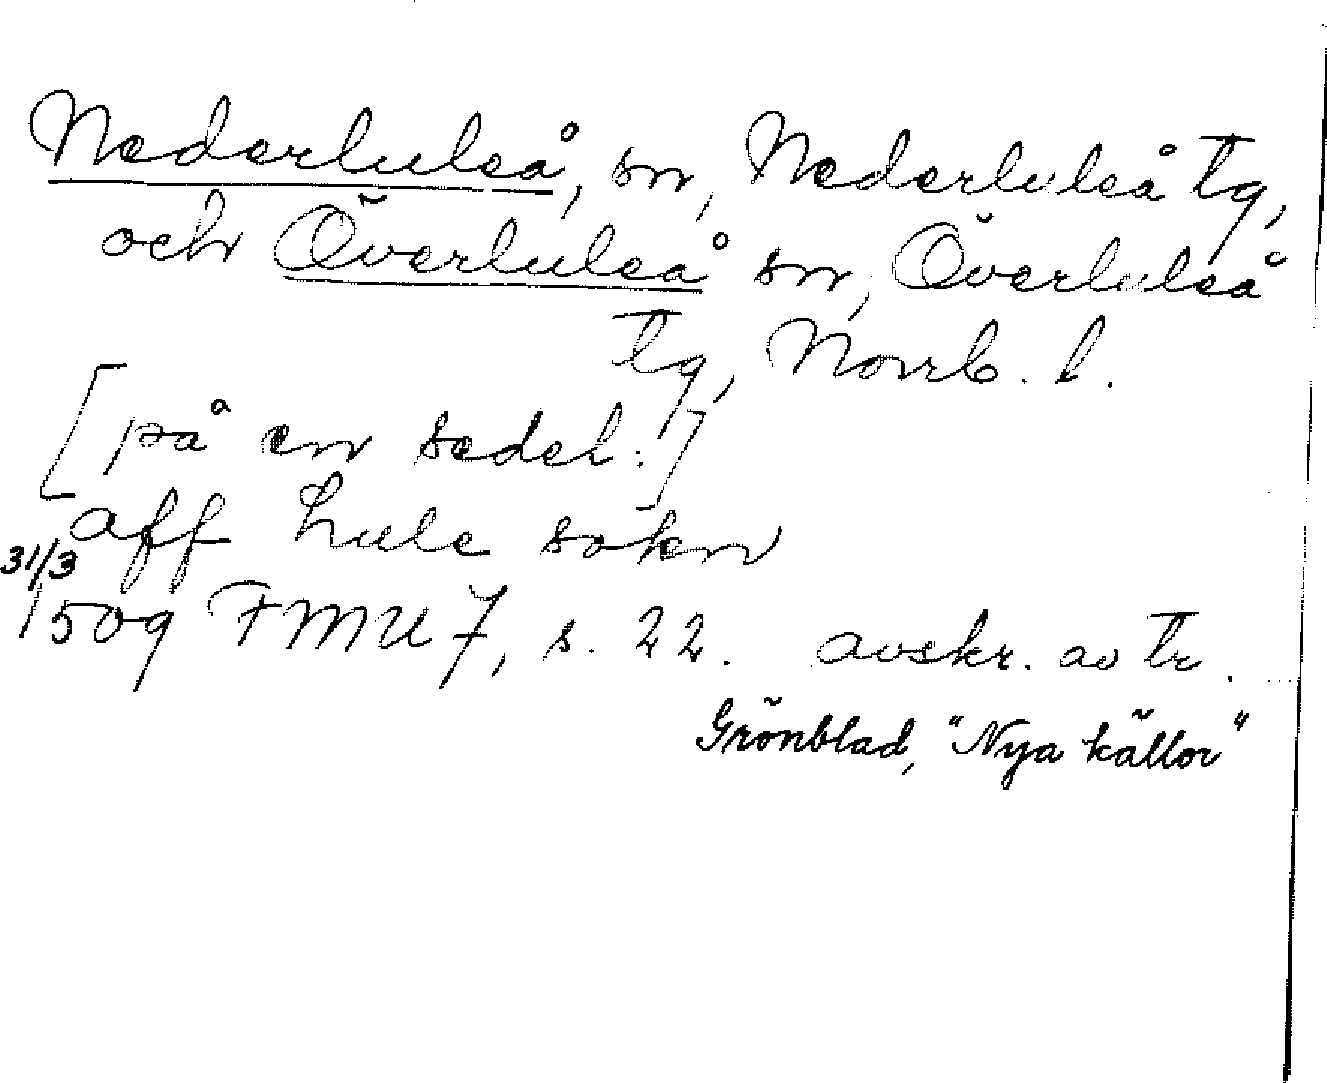 Nederluleå, sn, Nederluleå tg,
och Överluleå sn, Överluleå
tg, Norrb. l.
[på en sedel:]
aff Lule sokn
31/3
1509 FMU 7, s. 22. avskr. av tr.
Grönblad, "Nya källor"